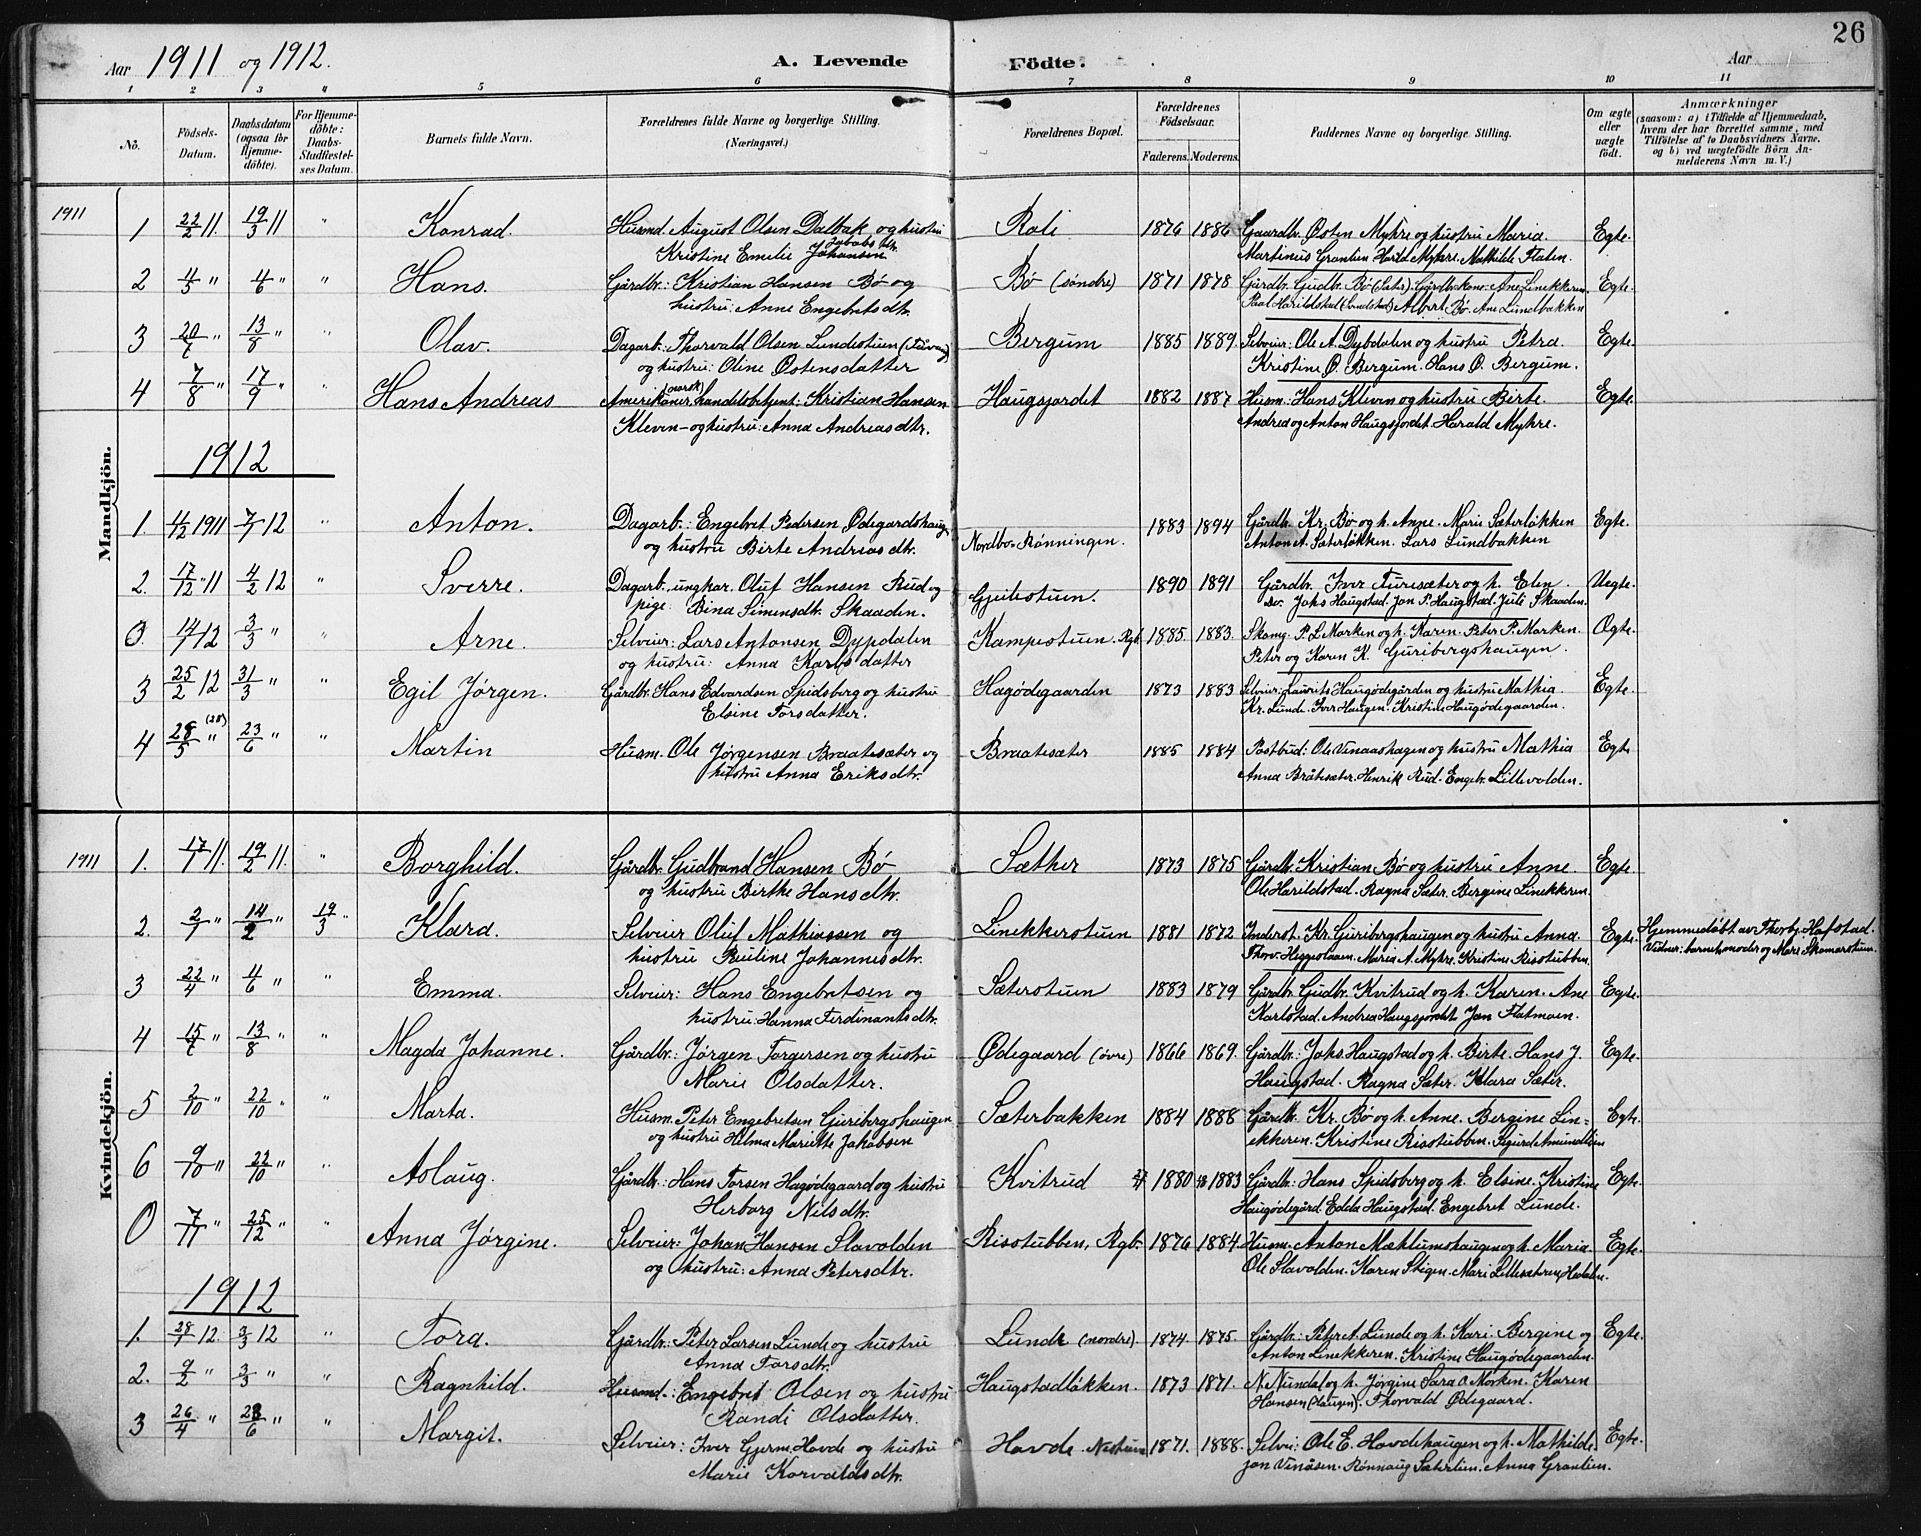 26
Aar 1911 og 1912. A. Levende Födte. Aar
1 2 3 4 5 6 7 8 9 10 11
No. Födsels-Datum. Daabsdatum (ogsaa for Hjemmedöbte). For Hjemmedöbte: Daabs-Stadfæstelses Datum. Barnets fulde Navn. Forældrenes fulde Navne og borgerlige Stilling. (Næringsvei.) Forældrenes Bopæl. Forældrenes Fødselsaar. Faderens. Moderens. Faddernes Navne og borgerlige Stilling. Om ægte eller uægte født. Anmærkninger (saasom: a) i Tilfælde af Hjemmedaab, hvem der har forrettet samme, med Tilføielse af to Daabsvidners Navne. og b) ved uægtefødte Børn Anmelderens Navn m. V.)
Mandkjön.
1911 1 22/2 11. 19/3 11 " Konrad. Husmd August Olsen Dalbak og hustru Roli 1876 1886 Gaardbr. Østen Myhre og hustru Maria. Egte.
Kristine Emelie Johansen Martinius Granlien Harald Myhre. Mathilde Flaten.
2 4/3 " 4/6 " " Hans. Gårdbr.: Kristian Hansen Bø og Bø (søndre) 1871 1878 Gårdbr. Gudbr. Bø (Sater). Gårdbr.kone Ane Linekkeren Egte.
hustru: Anne Engebretsdtr. Paal Harildstad Albert Bø. Ane Lundbakken
3 20/7 " 13/8 " " Olav. Dagarb.: Thorvald Olsen Lundestuen Bergum 1885 1889. Selveier: Ole A. Dybdalen og hustru Petra Egte.
og hustru: Oline Østensdatter Kristine O. Bergum. Hans O. Bergum.
4 7/8 " 17/9 " " Hans Andreas Amerikaner (norsk) handelsbetjent: Kristian Hansen Haugsjordet 1882 1887 Husm: Hans Kleven og hustru Birte. Egte.
Klevin - og hustru: Anna Andreasdtr. Andrea og Anton Haugsjordet. Harald Myhre.
1912
1. 4/12 1911 7/1 12 " Anton. Dagarb.: Engebret Pedersen Ødegardshaug Nordbo-Rønningen. 1883 1894 Gårdbr. Kr. Bø og h. Anne. Marie Sæterløkken Egte.
og hustru Birte Andreasdtr. Anton A. Sæterløkken. Lars Lundbakken
2. 17/12 11 4/2 12 " Sverre. Dagarb., ungkar. Oluf Hansen Rud og Gjeilestuen. 1890 1891 Gårdbr. Iver Turisæter og h. Elen. Uegte.
pige. Bina Simensdtr. Skaaden. do. Johs Haugstad. Jon P. Haugstad. Juli Skaaden.
0. 14/1 12 3/3 " " Arne. Selveier: Lars Antonsen Dypdalen Kampestuen. Rgb. 1885. 1883. Skomg. P. L. Morken og h. Karen. Peter P. Morken. Ogte.
og hustru: Anna Karlsdatter Peter og Karen K. Guribergshaugen.
3 25/2 12 31/3 " " Egil Jørgen. Gårdbr. Hans Edvardsen Spidsberg og hustru Hagødegaarden 1873 1883 Selveier: Laurits Haugødegården og hustru Mathia. Egte.
Elsine Torsdatter. Kr. Lunde. Iver Haugen. Kristine Haugødegaarden.
4 28/5 (28) " 23/6 " " Martin Husm. Ole Jørgensen Braatesæter og Braatesæter 1885 1884 Postbud: Ole Vinaashagen og hustru Mathia Egte
hustru Anna Eriksdtr. Anna Bråtesæter. Henrik Rud. Engebr. Lillevolden.
Kvindekjön.
1911 1. 17/1 11. 19/2 11. " Borghild. Gårdbr. Gudbrand Hansen Bø Sæther 1873 1875 Gårdbr. Kristian Bø og hustru Anne. Egte.
og hustru Birthe Hansdtr. Ole Harildstad. Ragna Sæter. Bergine Linekkeren.
2. 2/1 " 14/2 " 19/3 " Klara. Selveier Oluf Mathiassen og Linekkerstuen 1881 1872 Inderst. Kr. Guribergshaugen og hustru Anna. Egte. Hjemmedøbt av Thorbj. Hafstad.
hustru Pauline Johannesdtr. Thorv. Heggestaaen. Maria A. Myhre. Kristine Risstubben. Vidner: barnets moder og Mari Skomarstuen.
3 22/4 " 4/6 " " Emma. Selveier: Hans Engebretsen og Sæterstuen 1883 1879 Gårdbr. Gudbr. Kvitrud og h. Karen. Ane Egte.
hustru: Hanna Ferdinantsdtr. Karlstad. Andrea Haugsjordet. Jan Flatmoen.
4 15/7 " 13/8 " " Magda Johanne. Gårdbr.: Jørgen Torgersen og hustru Ødegaard (øvre) 1866 1869. Gårdbr.: Johs. Haugstad og h. Birte. Hans J. Egte.
Marie Olsdatter. Haugstad. Ragna Sæter. Klara Sæter.
5 2/10 " 22/10 " " Marta. Husm. Peter Engebretsen Guribergshaugen Sæterbakken 1884 1888 Gårdbr. Kr. Bø og h. Anne. Bergine Lin= Egte.
og hustru Helma Mariette Jakobsen ekkeren. Kristine Risstubben. Sigurd Amundlien
6 9/10 " 22/10 " " Aslaug. Gårdbr.: Hans Torsen Hagødegaard og hustru Kvitrud 1880 1883 Gårdbr.: Hans Spidsberg og h. Elsine. Kristine Egte.
Herborg Nilsdtr. Haugødegård. Edda Haugstad. Engebret Lunde.
0 7/11 " 25/12 " " Anna Jørgine. Selveier: Johan Hansen Slavolden Risstubben, Rgb. 1876 1884. Husm. Anton Mæhlumshaugen og h. Maria. Egte.
og hustru: Anna Petersdtr. Ole Slavolden. Karen Stigen. Mari Lillesæteren, Hedalen.
1912
1. 28/1 12. 3/3 12 " Tora. Gårdbr.: Peter Larsen Lunde og hustru Lunde (nordre). 1874 1875. Gårdbr.: Peter A. Lunde og h. Kari. Bergine og Egte.
Anna Torsdtr. Anton Linekkeren. Kristine Haugødegaarden.
2. 9/2 " 3/3 " " Ragnhild. Husmd.: Engebret Olsen og hustru Haugstadløkken. 1873 1871. N. Nundal og h. Jørgine Sara O. Morken. Karen
Randi Olsdatter. Hansen (Haugen). Thorvald Ødegaard.
3 26/4 " 28/6 " " Margit. Selveier: Iver Gjerm. Hovde og hustru Hovde Nestuen 1871. 1888. Selvei: Ole E. Hovdehaugen og h. Mathilde. Egte.
Marie Korvaldsdtr. Jon Vinåsen. Rønnaug Sæterlien. Anna Granlien.